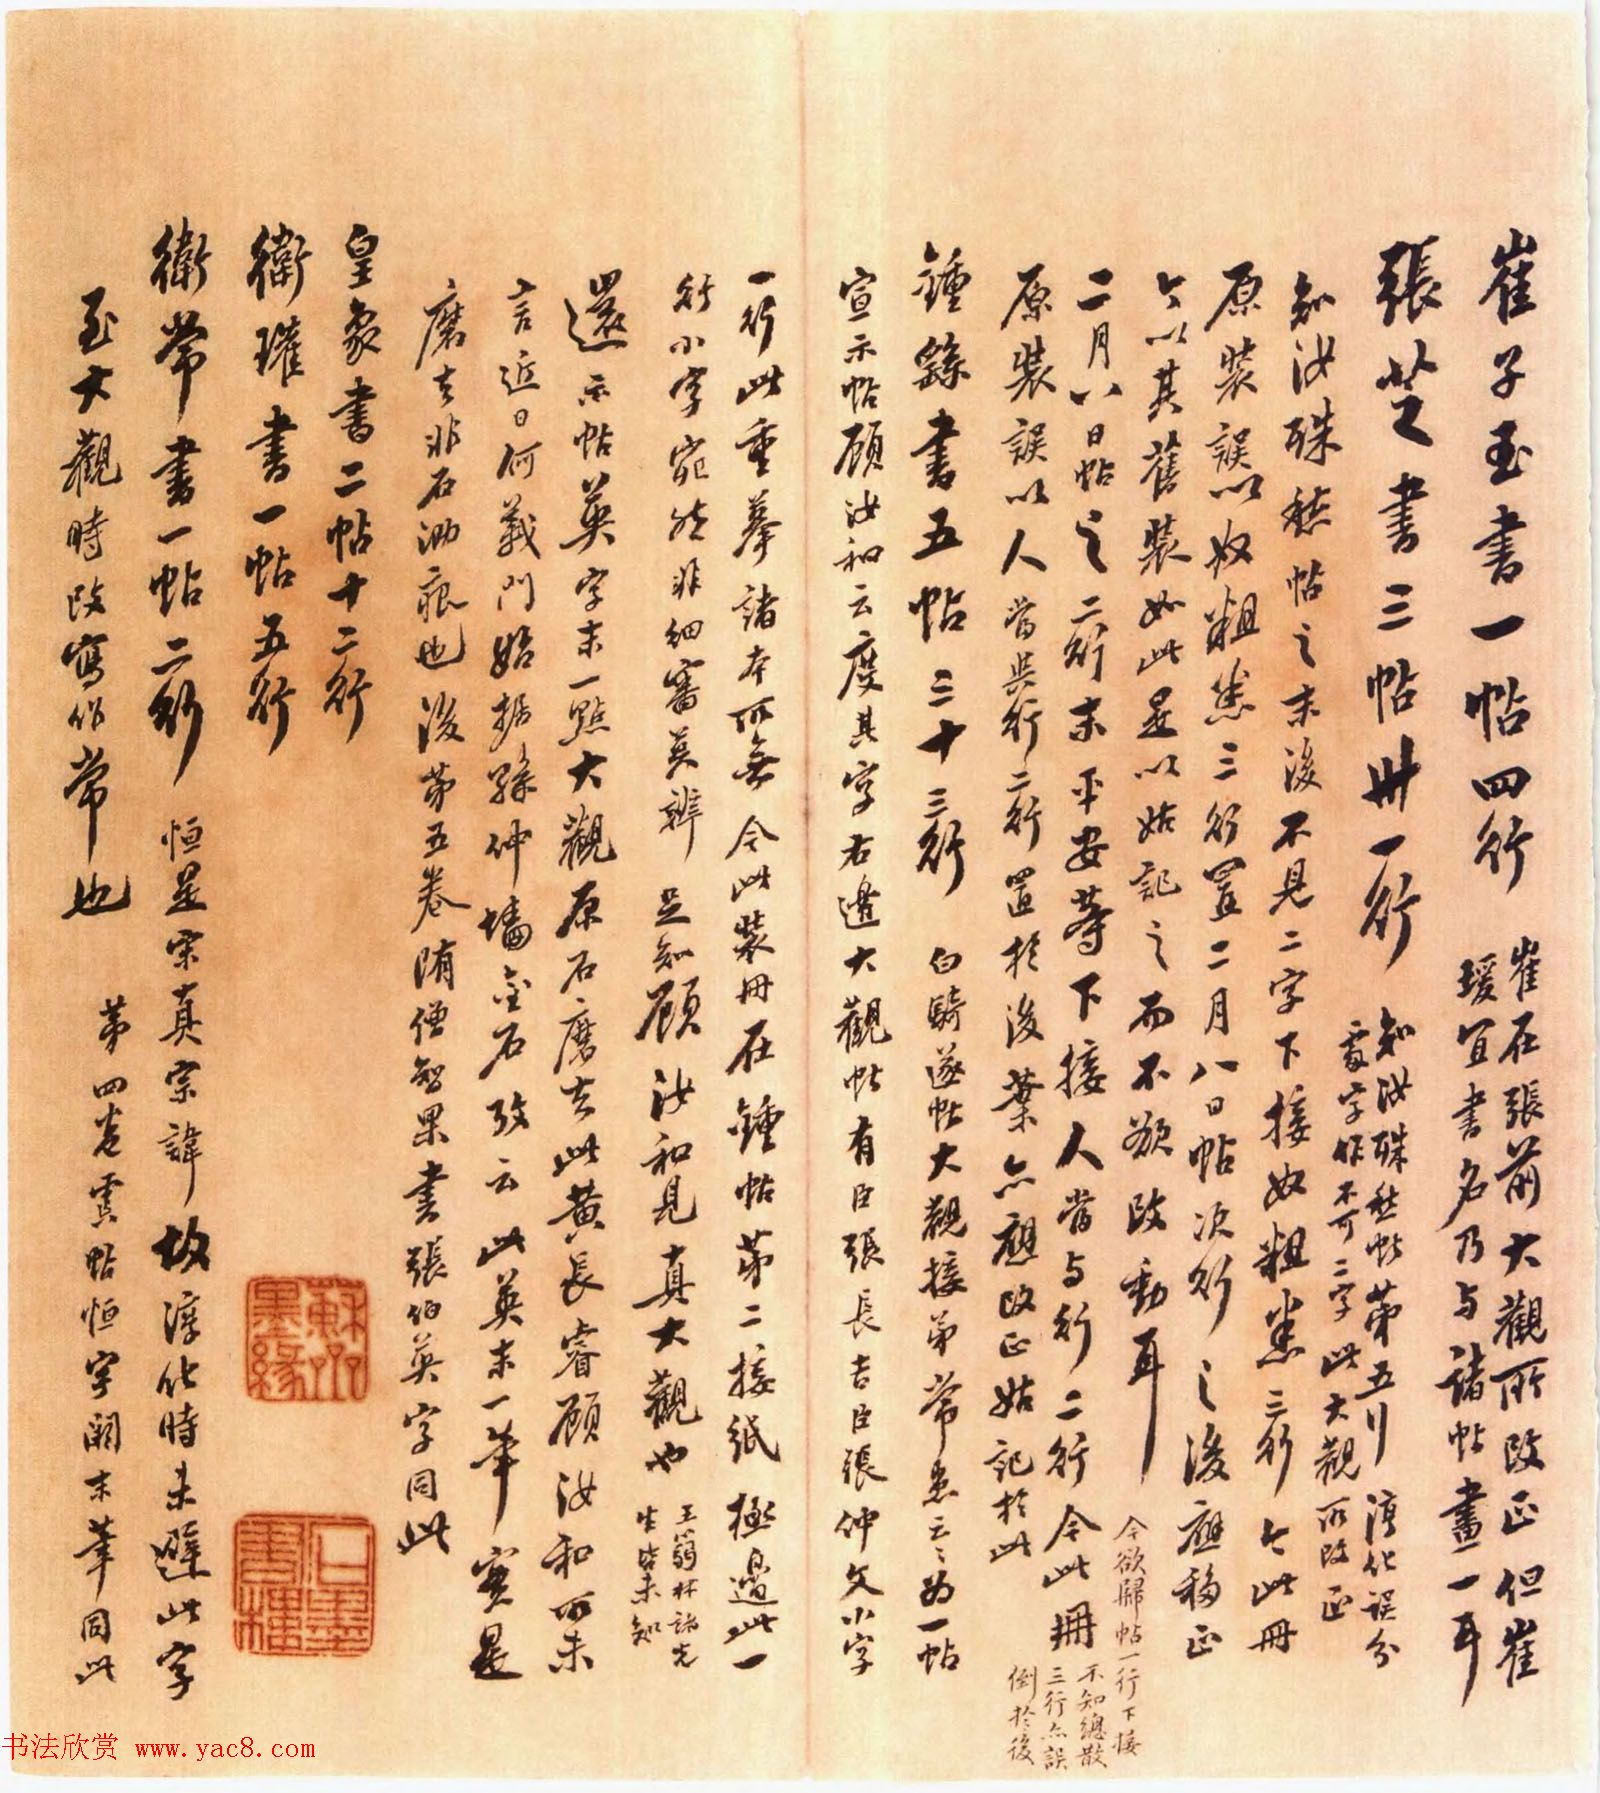 崔子玉書一帖四行
崔在張前大觀所改正但崔
瑗宜書名乃与諸帖畫一耳
張芝書三帖卅一行
知汝殊愁帖第五行淳化誤分
處字作不可二字此大觀所改正
知汝殊愁帖之末後不見二字下接奴粗恙三行今此冊
原裝誤以奴粗恙三行置二月八日帖次行之後應移正
今以其舊裝如此是以姑記之而不敢改動耳
今欲歸帖一行下接
不知總散
三行亦誤
倒於後
二月八日帖之二行末平安等下接人當与行二行今此冊
原裝誤以人當与行二行置於後葉亦應改正姑記於此
鍾繇書五帖三十三行
白騎遂帖大觀接弟常患云々為一帖
宣示帖顧汝和云度其字右邊大觀帖有臣張長吉臣張仲文小字
一行此重摹諸本所無今此裝冊在鍾帖第二接紙極邊此一
行小字宛然非細審莫辨足知顧汝和見真大觀也
王篛林諸先
生皆未知
還示帖英字末一點大觀原石磨去此黃長睿顧汝和所未
言近日何義門始據孫仲墻金石攷云此英末一筆實是
磨去非石泐痕也後第五卷隋僧智果書張伯英字同此
皇象書二帖十二行
衛瓘書一帖五行
衛常書一帖二行
恒是宋真宗諱故淳化時未避此字
至大觀時改寫作常也
第四卷虞帖恒字闕末筆同此
蘇齋墨緣
石墨書樓
书法欣赏 www.yac8.com